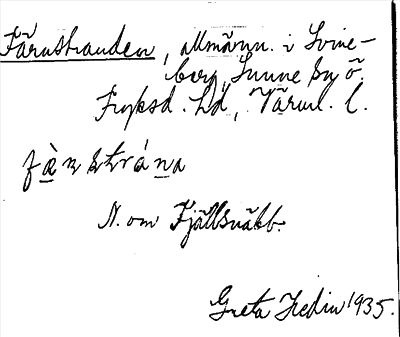 Färnstranden, allmänn. i Svine-
berg, Sunne sn ö.
Fryksd. hd, Värml. l.
fànstrána
N. om Fjällsnäbb.
Greta Hedin 1935.